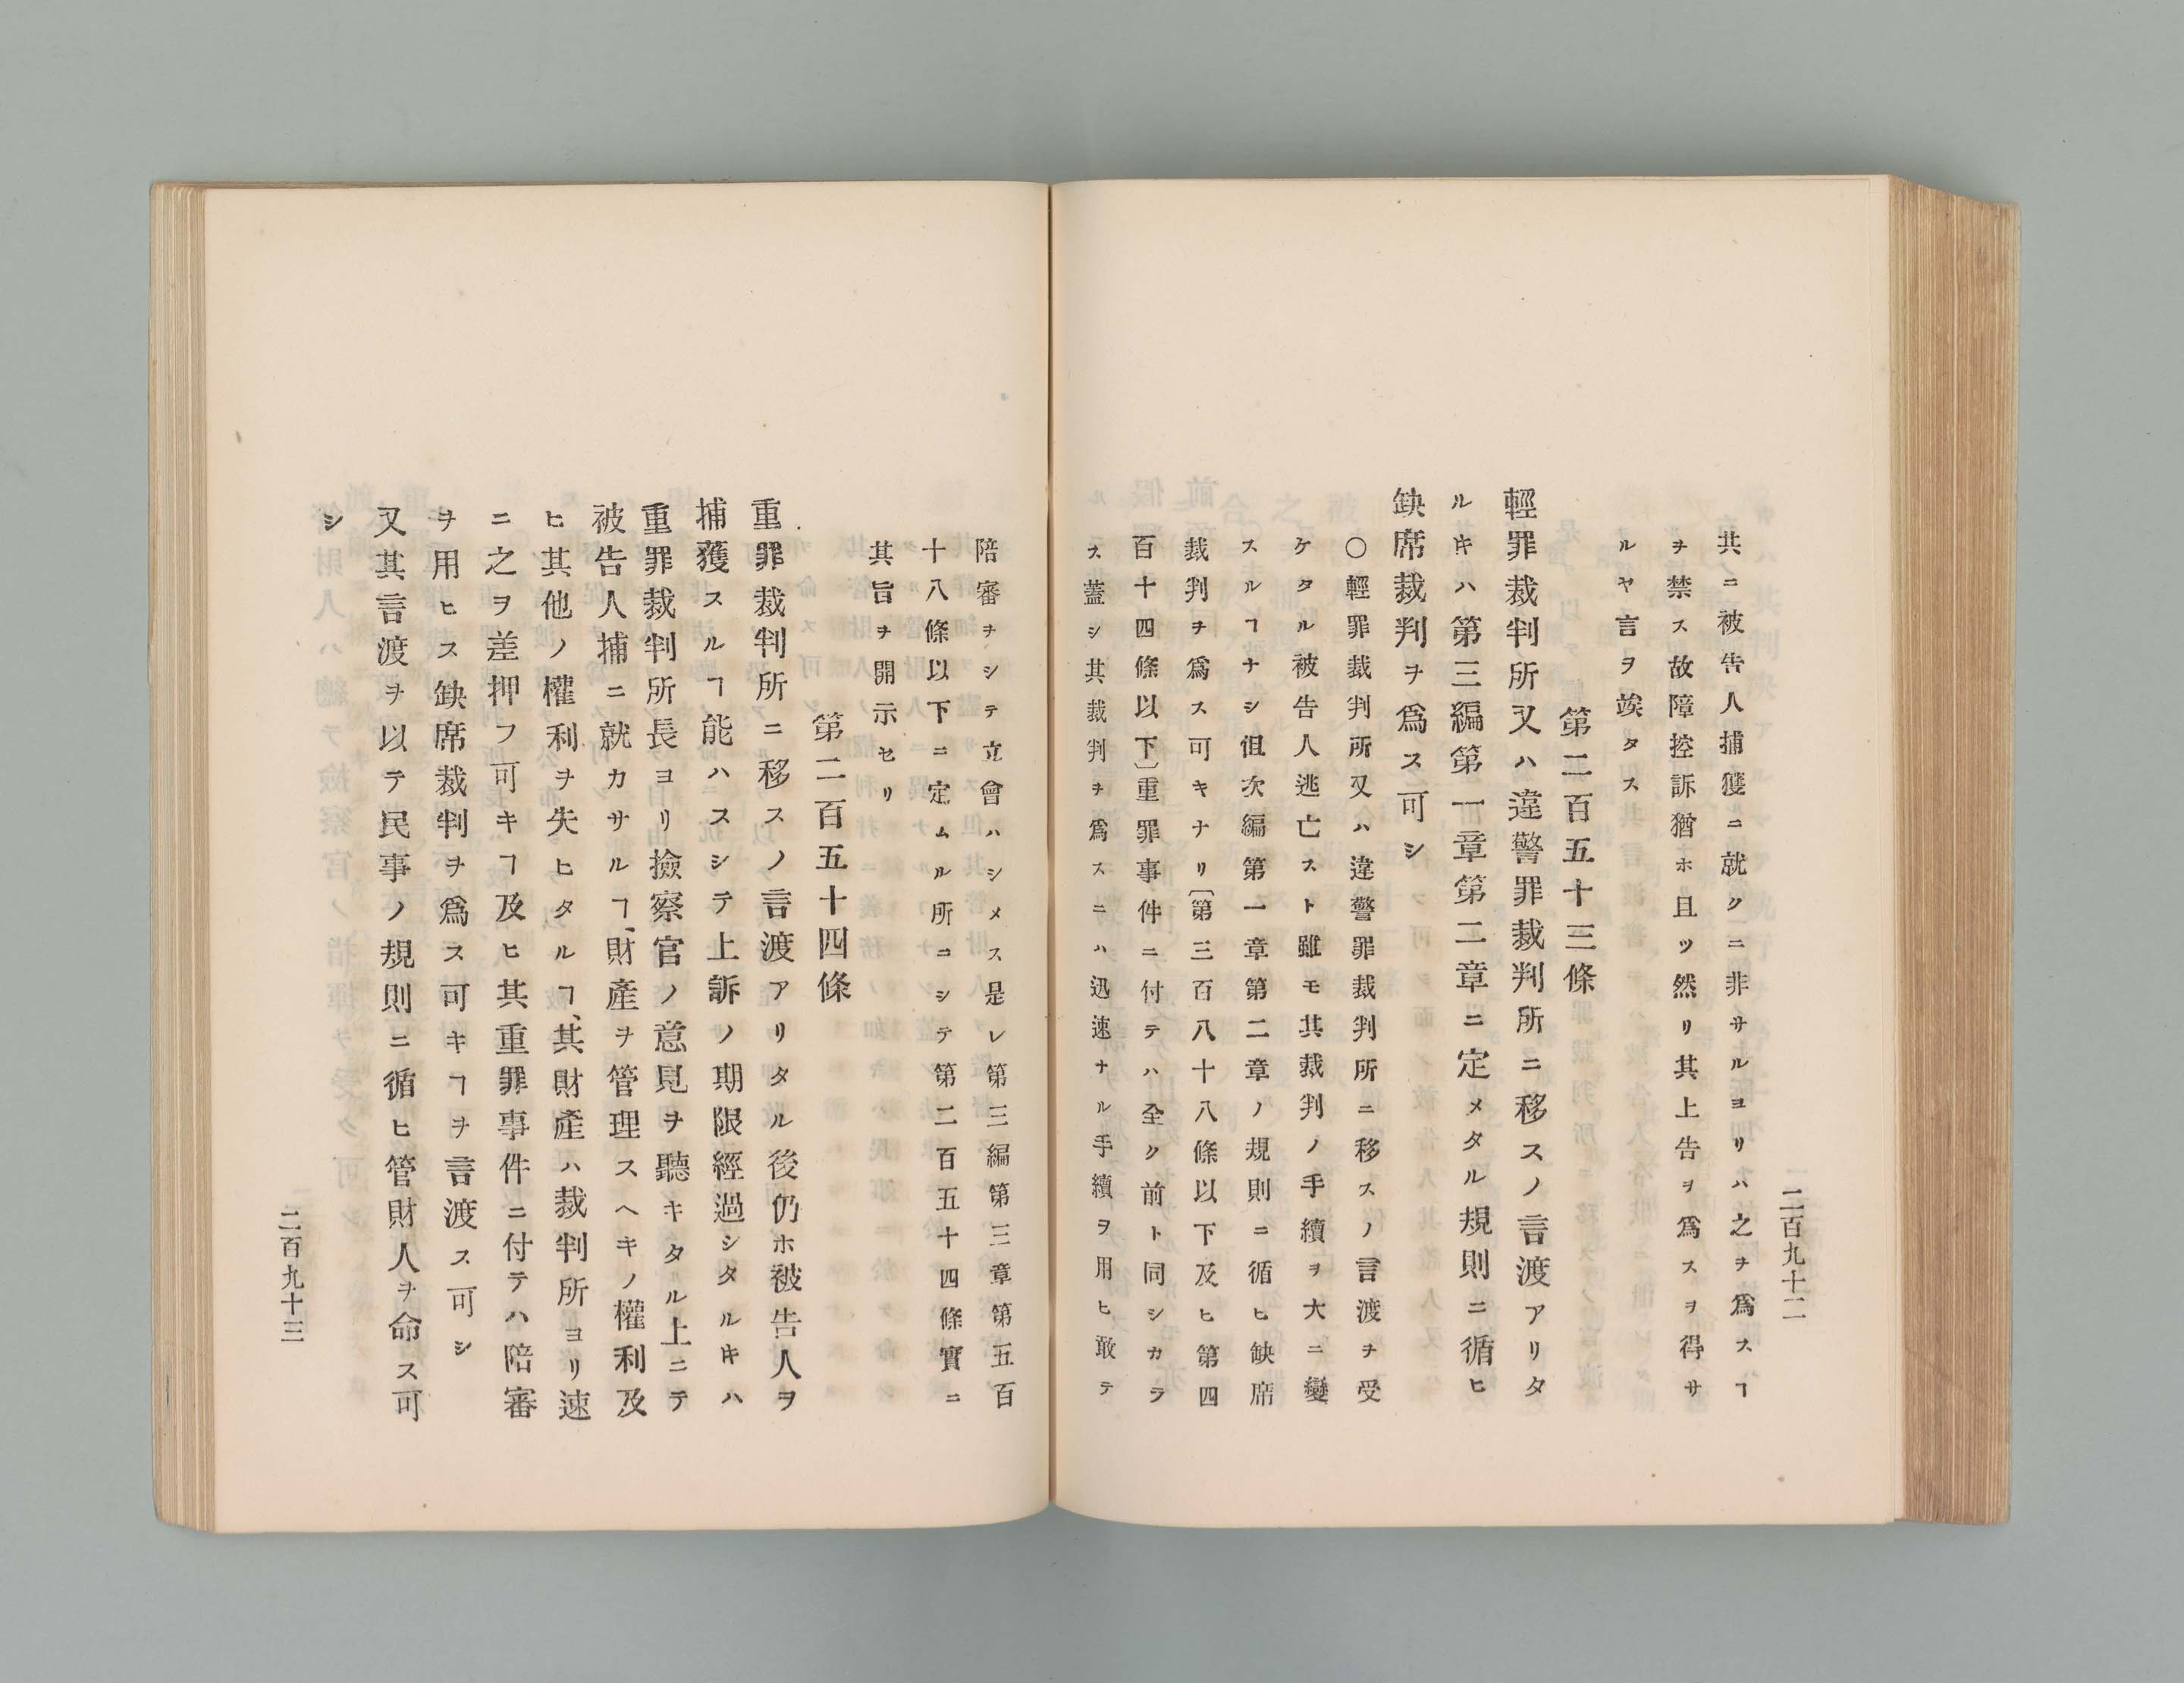 二百九十二
共ニ被告人捕獲ニ就クニ非サルヨリハ之ヲ爲スヿ
ヲ禁ス故障控訴猶ホ且ツ然リ其上告ヲ爲スヲ得サ
ルヤ言ヲ竢タス
第二百五十三條
輕罪裁判所又ハ違警罪裁判所ニ移スノ言渡アリタ
ルキハ第三編第一章第二章ニ定メタル規則ニ循ヒ
缺席裁判ヲ爲ス可シ
〇輕罪裁判所又ハ違警罪裁判所ニ移スノ言渡ヲ受
ケタル被告人逃亡スト雖モ其裁判ノ手續ヲ大ニ變
スルヿナシ但次編第一章第二章ノ規則ニ循ヒ缺席
裁判ヲ爲ス可キナリ〔第三百八十八條以下及ヒ第四
百十四條以下〕重罪事件ニ付テハ全ク前ト同シカラ
ス蓋シ其裁判ヲ爲スニハ迅速ナル手續ヲ用ヒ敢テ
陪審ヲシテ立會ハシメス是レ第三編第三章第五百
十八條以下ニ定ムル所ニシテ第二百五十四條實ニ
其旨ヲ開示セリ
第二百五十四條
重罪裁判所ニ移スノ言渡アリタル後仍ホ被告人ヲ
捕獲スルヿ能ハスシテ上訴ノ期限經過シタルキハ
重罪裁判所長ヨリ撿察官ノ意見ヲ聽キタル上ニテ
被告人捕ニ就カサルヿ、財產ヲ管理スヘキノ權利及
ヒ其他ノ權利ヲ失ヒタルヿ、其財產ハ裁判所ヨリ速
ニ之ヲ差押フ可キヿ及ヒ其重罪事件ニ付テハ陪審
ヲ用ヒス缺席裁判ヲ爲ス可キヿヲ言渡ス可シ
又其言渡ヲ以テ民事ノ規則ニ循ヒ管財人ヲ命ス可
シ
二百九十三